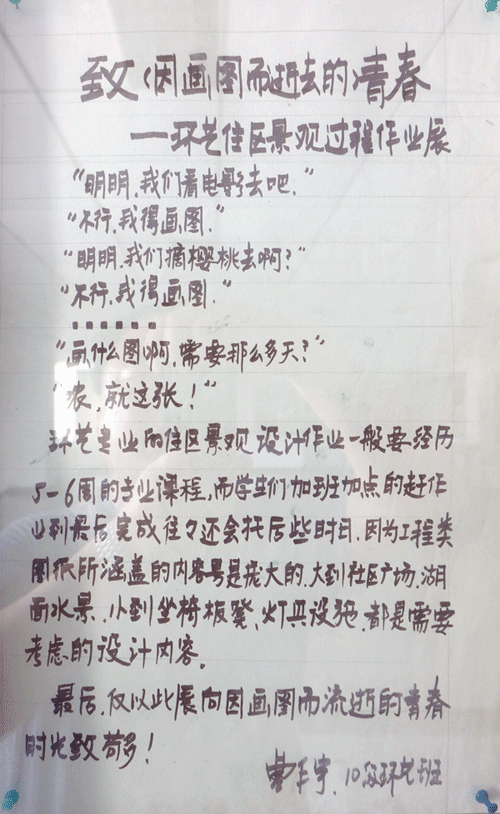 致(因画图而逝去的)青春
——环艺住区景观过程作业展
“明明,我们看电影去吧.”
“不行,我得画图.”
“明明,我们摘樱桃去啊?”
“不行,我得画图.”
......
“画什么图啊,需要那么多天?”
“哝,就这张!”
环艺专业的住区景观设计作业一般要经历
5-6周的专业课程,而学生们加班加点的赶作
业到最后完成往々还会托后些时日,因为工程类
图纸所涵盖的内容量是庞大的,大到社区广场、湖
面水景、小到坐椅板凳、灯具设施、都是需要
考虑的设计内容.
最后,仅以此展向因画图而流逝的青春
时光致
10级环艺班